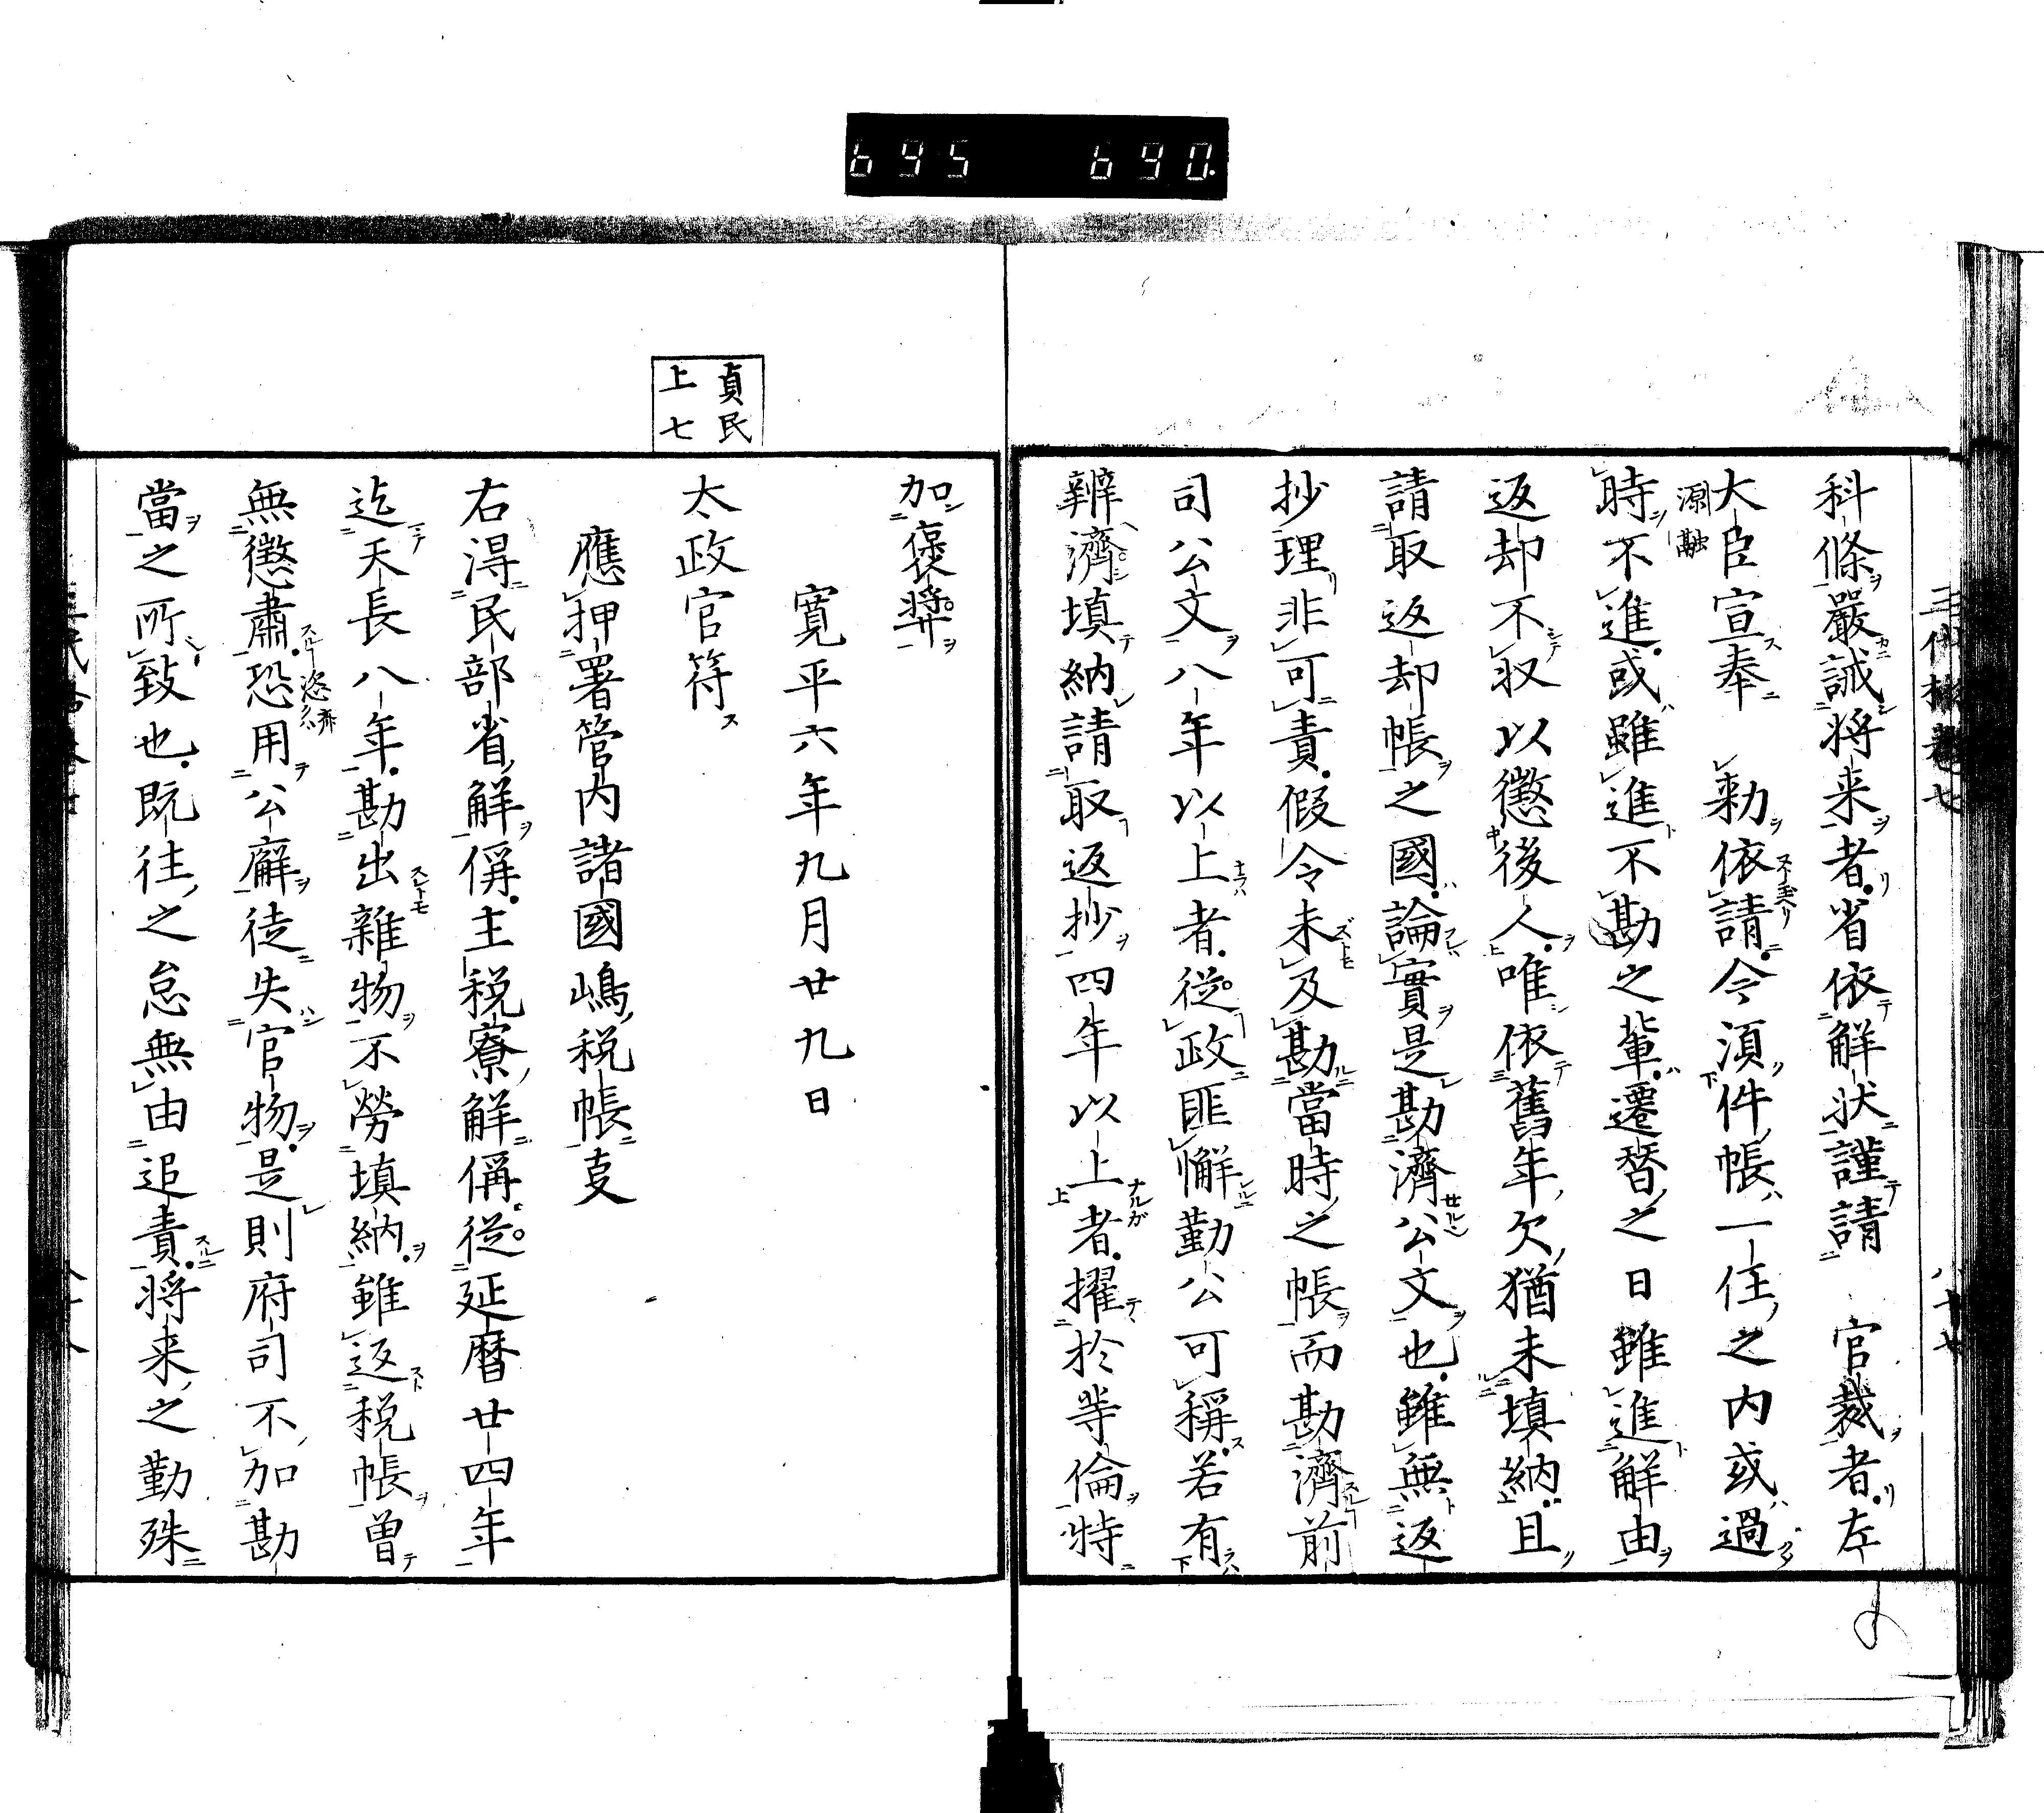 695 690.
科條嚴誡将来者省依解状謹請　官裁者左
大臣宣奉　勅依請今湏件帳一任之内或過
源融
時不進或雖進不勘之輩遷替之日雖進解由
返却不収以懲後人唯依舊年欠猶未填納且
請取返却帳之國論實是勘濟公文也雖無返
抄理非可責假令未及勘當時之帳而勘濟前
司公文八年以上者従政匪懈勤公可稱若有
辨濟填納請取返抄四年以上者擢於等倫特
貞民
上七
加褒奨
寛平六年九月廿九日
太政官符
應押署管内諸國嶋税帳㕝
右得民部省解偁主税寮解偁従延暦廿四年
迄天長八年勘出雜物不勞填納雖返税帳曽
無懲肅恐用公廨徒失官物是則府司不加勘
當之所致也既往之怠無由追責将来之勤殊